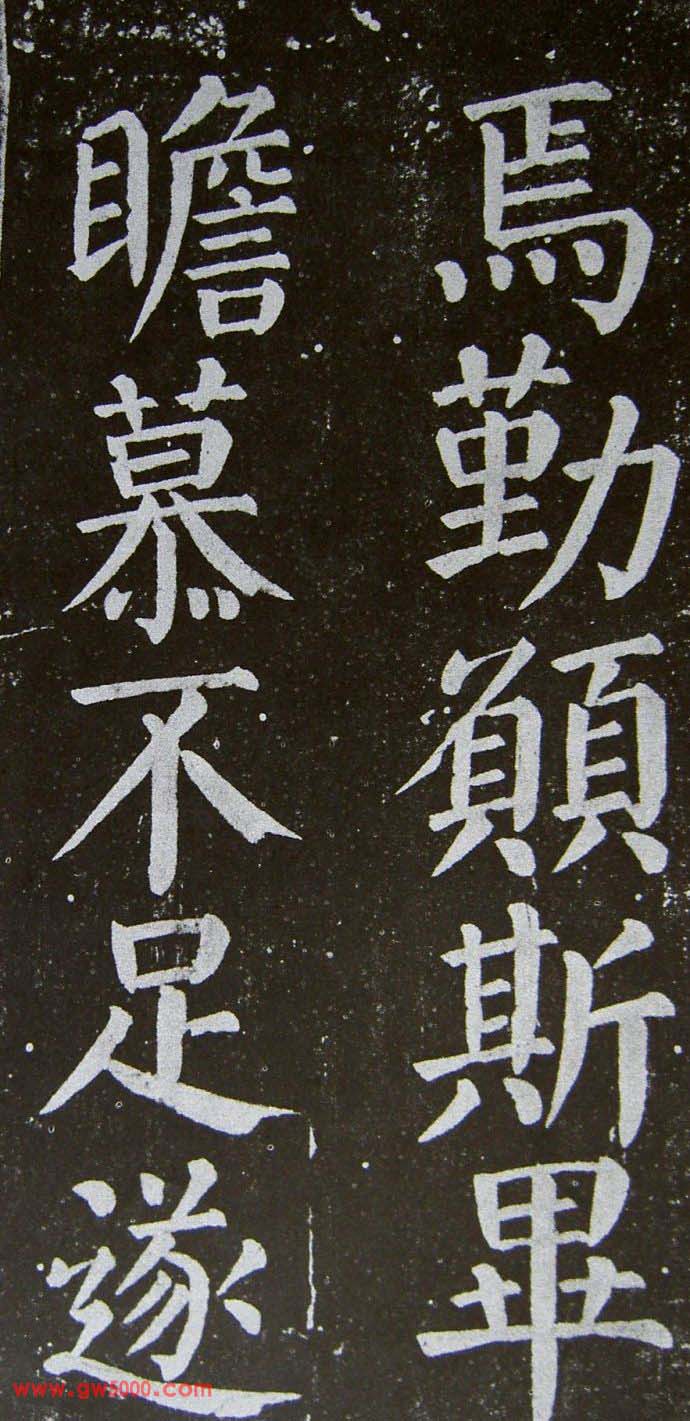 焉勤願斯畢
瞻慕不足遂
www.gw5000.com